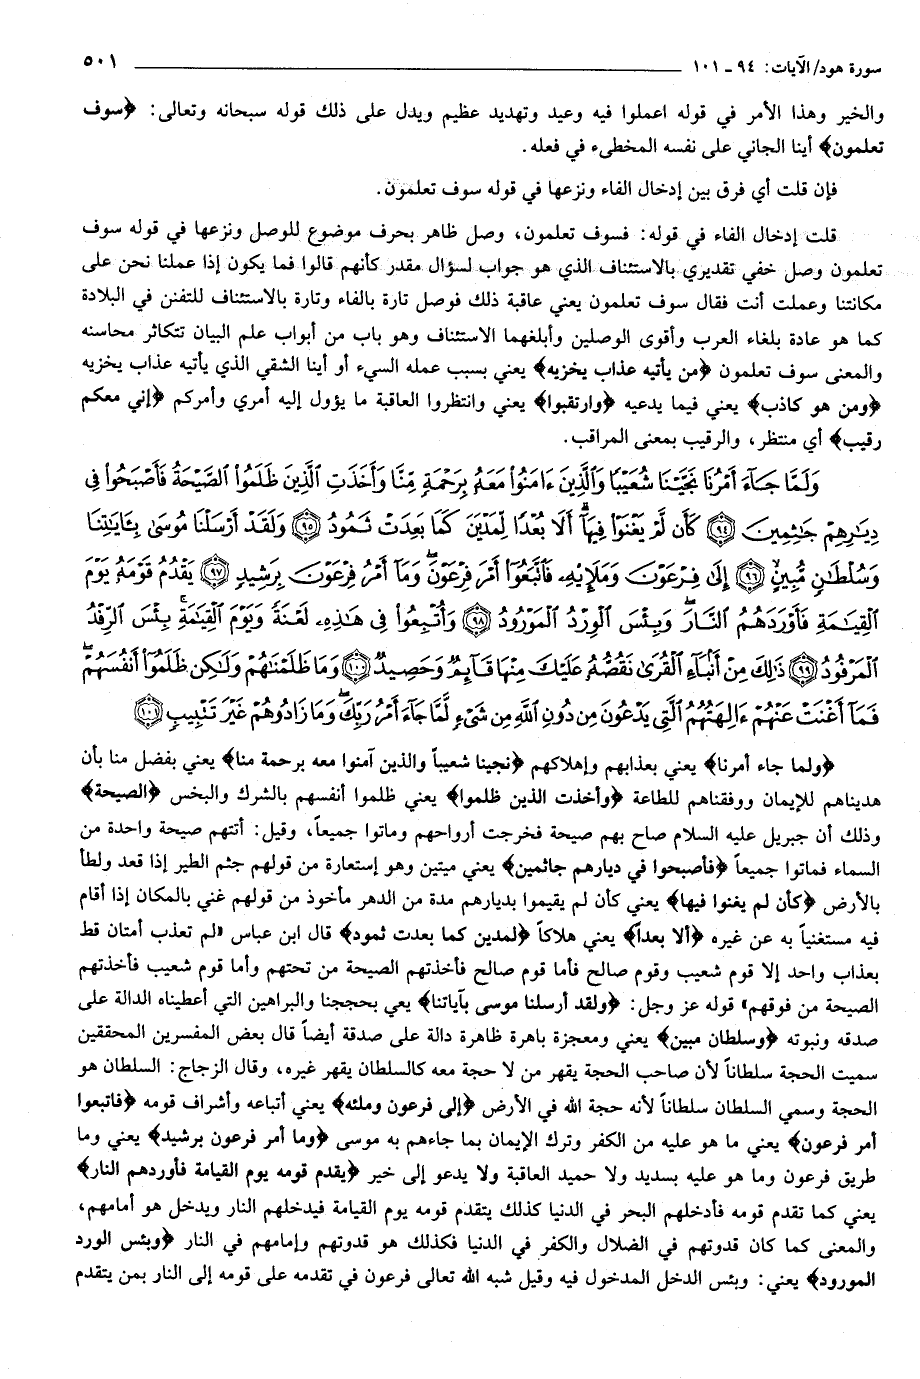 سورة هود/ الآيات: ٩٤ ـ ١٠١ ٥٠١
والخير وهذا الأمر في قوله اعملوا فيه وعيد وتهديد عظيم ويدل على ذلك قوله سبحانه وتعالى: ﴿سوف
تعلمون﴾ أينا الجاني على نفسه المخطىء في فعله.
فإن قلت أي فرق بين إدخال الفاء ونزعها في قوله سوف تعلمون.
قلت إدخال الفاء في قوله: فسوف تعلمون، وصل ظاهر بحرف موضوع للوصل ونزعها في قوله سوف
تعلمون وصل خفي تقديري بالاستئناف الذي هو جواب لسؤال مقدر كأنهم قالوا فما يكون إذا عملنا نحن على
مكانتنا وعملت أنت فقال سوف تعلمون يعني عاقبة ذلك فوصل تارة بالفاء وتارة بالاستئناف للتفنن في البلادة
كما هو عادة بلغاء العرب وأقوى الوصلين وأبلغهما الاستئناف وهو باب من أبواب علم البيان تتكاثر محاسنه
والمعنى سوف تعلمون ﴿من يأتيه عذاب يخزيه﴾ يعني بسبب عمله السيء أو أينا الشقي الذي يأتيه عذاب يخزيه
﴿ومن هو كاذب﴾ يعني فيما يدعيه ﴿وارتقبوا﴾ يعني وانتظروا العاقبة ما يؤول إليه أمري وأمركم ﴿إني معكم
رقيب﴾ أي منتظر، والرقيب بمعنى المراقب.
وَلَمَّا جَاءَ أَمْرُنَا نَجَّيْنَا شُعَيْبًا وَالَّذِينَ ءَامَنُوا مَعَهُ بِرَحْمَةٍ مِنَّا وَأَخَذَتِ الَّذِينَ ظَلَمُوا الصَّيْحَةُ فَأَصْبَحُوا فِي
دِيَارِهِمْ جَاثِمِينَ ﴿٩٤﴾ كَأَن لَّمْ يَغْنَوْا فِيهَا أَلَا بُعْدًا لِّمَدْيَنَ كَمَا بَعِدَتْ ثَمُودُ ﴿٩٥﴾ وَلَقَدْ أَرْسَلْنَا مُوسَى بِآيَاتِنَا
وَسُلْطَانٍ مُّبِينٍ ﴿٩٦﴾ إِلَى فِرْعَوْنَ وَمَلَإِيْهِ فَاتَّبَعُوا أَمْرَ فِرْعَوْنَ وَمَا أَمْرُ فِرْعَوْنَ بِرَشِيدٍ ﴿٩٧﴾ يَقْدُمُ قَوْمَهُ يَوْمَ
الْقِيَامَةِ فَأَوْرَدَهُمُ النَّارَ وَبِئْسَ الْوِرْدُ الْمَوْرُودُ ﴿٩٨﴾ وَأُتْبِعُوا فِي هَذِهِ لَعْنَةً وَيَوْمَ الْقِيَامَةِ بِئْسَ الرِّفْدُ
الْمَرْفُودُ ﴿٩٩﴾ ذَلِكَ مِنْ أَنْبَاءِ الْقُرَى نَقُصُّهُ عَلَيْكَ مِنْهَا قَائِمٌ وَحَصِيدٌ ﴿١٠٠﴾ وَمَا ظَلَمْنَاهُمْ وَلَكِن ظَلَمُوا أَنْفُسَهُمْ
فَمَا أَغْنَتْ عَنْهُمْ ءَالِهَتُهُمُ الَّتِي يَدْعُونَ مِن دُونِ اللَّهِ مِن شَيْءٍ لَّمَّا جَاءَ أَمْرُ رَبِّكَ وَمَا زَادُوهُمْ غَيْرَ تَتْبِيبٍ ﴿١٠١﴾
﴿ولما جاء أمرنا﴾ يعني بعذابهم وإهلاكهم ﴿نجينا شعيباً والذين آمنوا معه برحمة منا﴾ يعني بفضل منا بأن
هديناهم للإيمان ووفقناهم للطاعة ﴿وأخذت الذين ظلموا﴾ يعني ظلموا أنفسهم بالشرك والبخس ﴿الصيحة﴾
وذلك أن جبريل عليه السلام صاح بهم صيحة فخرجت أرواحهم وماتوا جميعاً، وقيل: أتتهم صيحة واحدة من
السماء فماتوا جميعاً ﴿فأصبحوا في ديارهم جاثمين﴾ يعني ميتين وهو إستعارة من قولهم جثم الطير إذا قعد ولطأ
بالأرض ﴿كأن لم يغنوا فيها﴾ يعني كأن لم يقيموا بديارهم مدة من الدهر مأخوذ من قولهم غني بالمكان إذا أقام
فيه مستغنياً به عن غيره ﴿ألا بعداً﴾ يعني هلاكاً ﴿لمدين كما بعدت ثمود﴾ قال ابن عباس «لم تعذب أمتان قط
بعذاب واحد إلا قوم شعيب وقوم صالح فأما قوم صالح فأخذتهم الصيحة من تحتهم وأما قوم شعيب فأخذتهم
الصيحة من فوقهم» قوله عز وجل: ﴿ولقد أرسلنا موسى بآياتنا﴾ يعي بحججنا والبراهين التي أعطيناه الدالة على
صدقه ونبوته ﴿وسلطان مبين﴾ يعني ومعجزة باهرة ظاهرة دالة على صدقة أيضاً قال بعض المفسرين المحققين
سميت الحجة سلطاناً لأن صاحب الحجة يقهر من لا حجة معه كالسلطان يقهر غيره، وقال الزجاج: السلطان هو
الحجة وسمي السلطان سلطاناً لأنه حجة الله في الأرض ﴿إلى فرعون وملئه﴾ يعني أتباعه وأشراف قومه ﴿فاتبعوا
أمر فرعون﴾ يعني ما هو عليه من الكفر وترك الإيمان بما جاءهم به موسى ﴿وما أمر فرعون برشيد﴾ يعني وما
طريق فرعون وما هو عليه بسديد ولا حميد العاقبة ولا يدعو إلى خير ﴿يقدم قومه يوم القيامة فأوردهم النار﴾
يعني كما تقدم قومه فأدخلهم البحر في الدنيا كذلك يتقدم قومه يوم القيامة فيدخلهم النار ويدخل هو أمامهم،
والمعنى كما كان قدوتهم في الضلال والكفر في الدنيا فكذلك هو قدوتهم وإمامهم في النار ﴿وبئس الورد
المورود﴾ يعني: وبئس الدخل المدخول فيه وقيل شبه الله تعالى فرعون في تقدمه على قومه إلى النار بمن يتقدم